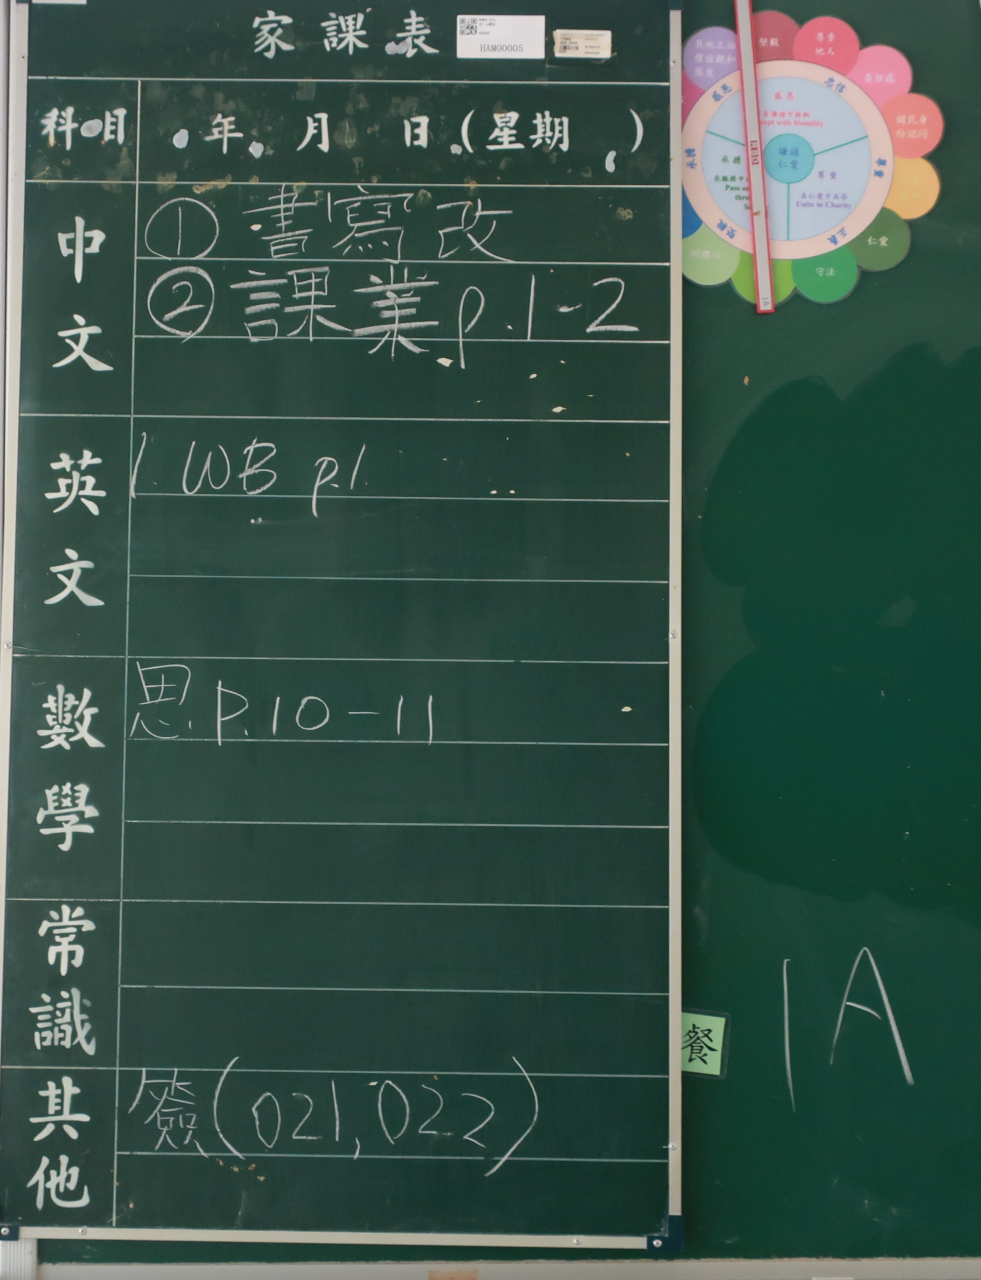 家課表
HAM00005
科目 年 月 日(星期 )
中文
① 書寫改
② 課業p.1-2
英文
1. WB p.1
數學
思 P.10-11
常識
其他
簽(021,022)
堅毅
尊重
他人
責任感
國民身
份認同
仁愛
守法
感恩
忠信
尊重
正義
堅毅
承擔
感恩
謙遜
仁愛
承擔
尊重
Unite in Charity
餐
1A